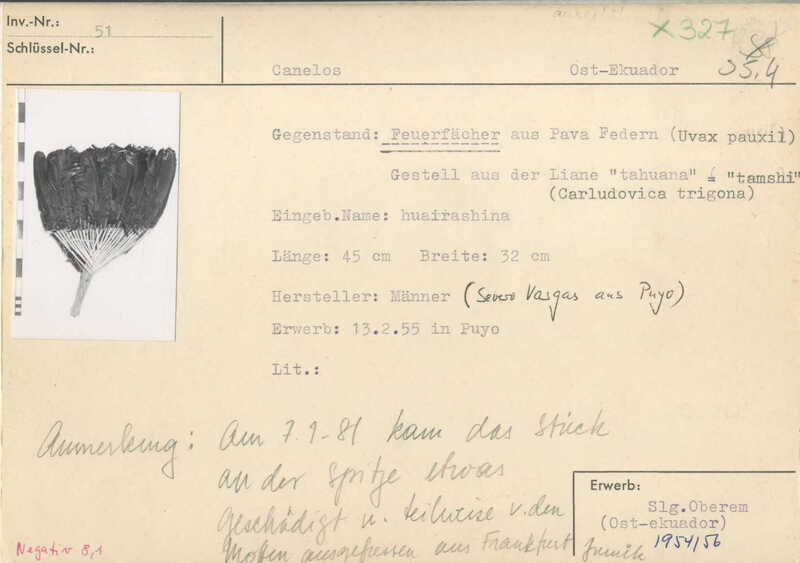 Inv.-Nr.: 51
Schlüssel-Nr.:
x 327
05,4
Canelos Ost-Ekuador
Gegenstand: Feuerfächer aus Pava Federn (Uvax pauxil)
Gestell aus der Liane "tahuana" "tamshi"
(Carludovica trigona)
Eingeb.Name: huairashina
Länge: 45 cm Breite: 32 cm
Hersteller: Männer (Severo Vargas aus Puyo)
Erwerb: 13.2.55 in Puyo
Lit.:
Anmerkung: Am 7.1-81 kam das Stück
an der Spitze etwas
geschädigt u. teilweise v. den
Motten ausgefressen aus Frankfurt zurück
Erwerb:
Slg.Oberem
(Ost-ekuador)
1954/56
Negativ 8,1